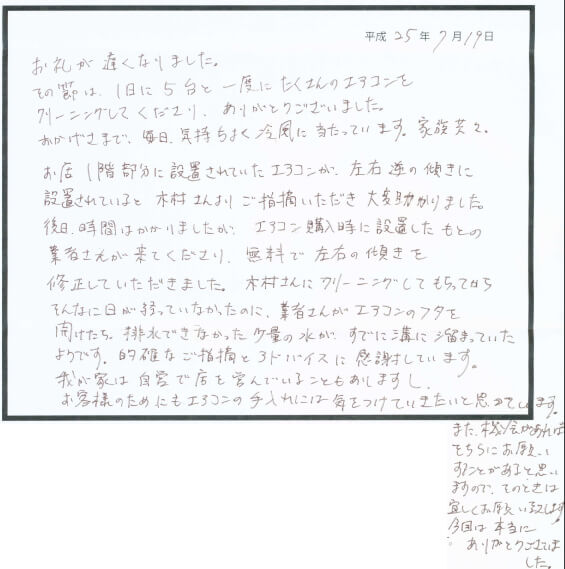 平成25年7月19日
お礼が遅くなりました。
その節は、1日に5台と一度にたくさんのエアコンを
クリーニングしてくださり、ありがとうございました。
おかげさまで、毎日、気持ちよく冷風に当たっています。家族共々。
お店1階部分に設置されていたエアコンが、左右逆の傾きに
設置されていると木村さんよりご指摘いただき大変助かりました。
後日、時間はかかりましたが、エアコン購入時に設置したもとの
業者さんが来てくださり、無料で左右の傾きを
修正していただきました。木村さんにクリーニングしてもらってから
そんなに日が経っていなかったのに、業者さんがエアコンのフタを
開けたら、排水できなかった少量の水がすでに溝に溜まっていた
ようです。的確なご指摘とアドバイスに感謝しています。
我が家は自営で店を営んでいることもありますし、
お客様のためにもエアコンの手入れには気をつけていきたいと思っています。
また、機会があれば
そちらにお願い
することがあると思い
ますので、そのときは
宜しくお願い致します。
今回は本当に
ありがとうございま
した。